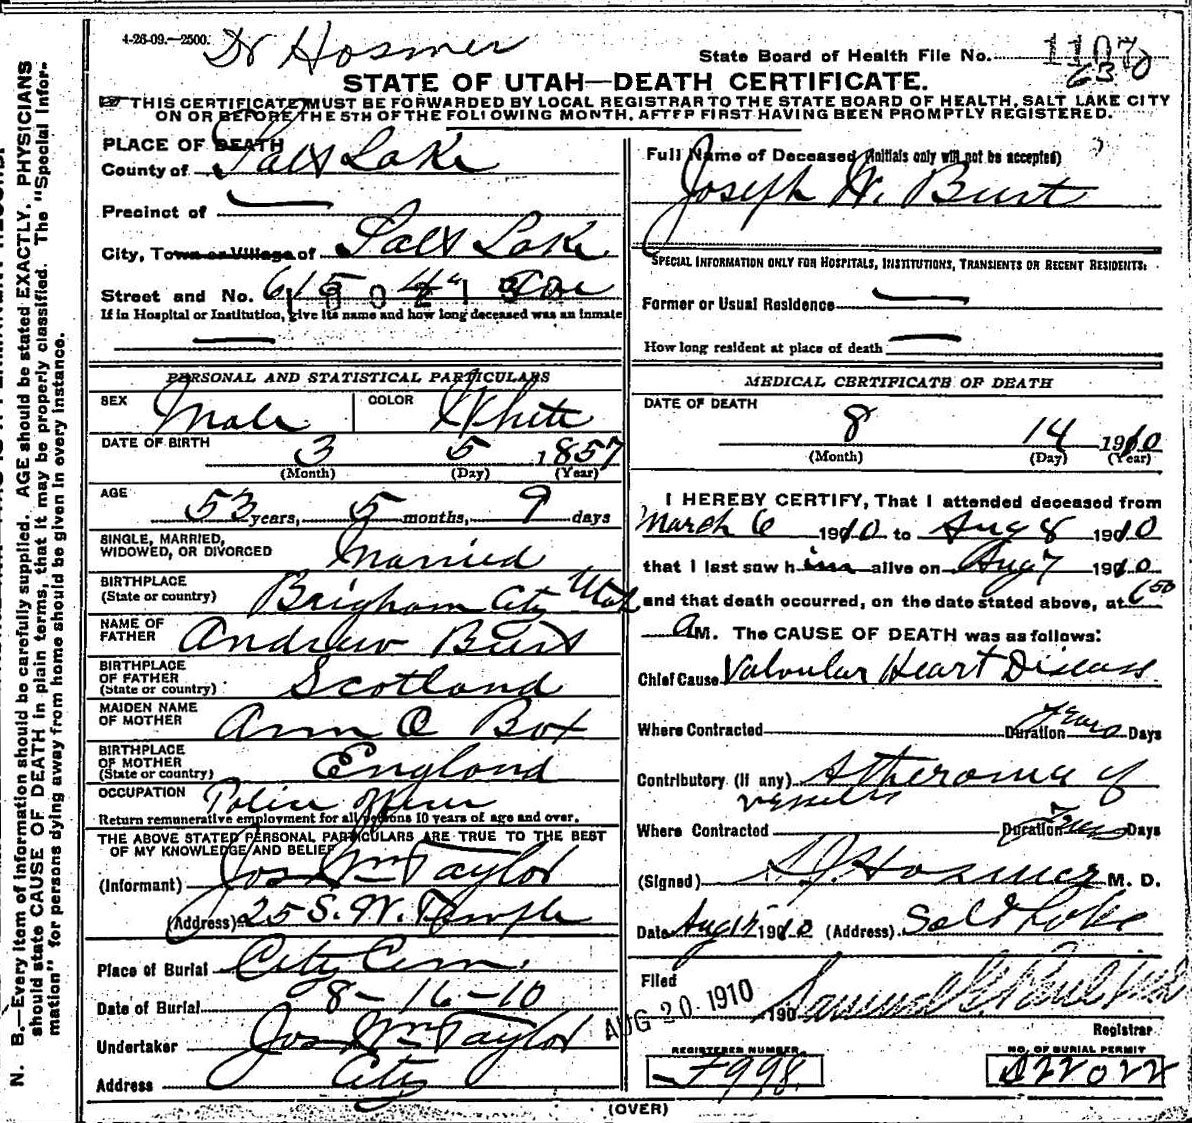 4-26-09.—2500.
Dr Hosmer
State Board of Health File No. 1107
630
STATE OF UTAH—DEATH CERTIFICATE.
THIS CERTIFICATE MUST BE FORWARDED BY LOCAL REGISTRAR TO THE STATE BOARD OF HEALTH, SALT LAKE CITY
ON OR BEFORE THE 5TH OF THE FOLLOWING MONTH, AFTER FIRST HAVING BEEN PROMPTLY REGISTERED.
PLACE OF DEATH
County of Salt Lake
Precinct of —
City, Town or Village of Salt Lake
Street and No. 615 4" Ave
If in Hospital or Institution, give its name and how long deceased was an inmate
—
Full Name of Deceased (Initials only will not be accepted)
Joseph W. Burt
SPECIAL INFORMATION ONLY FOR HOSPITALS, INSTITUTIONS, TRANSIENTS OR RECENT RESIDENTS:
Former or Usual Residence —
How long resident at place of death —
PERSONAL AND STATISTICAL PARTICULARS
SEX Male COLOR White
DATE OF BIRTH 3 5 1857
(Month) (Day) (Year)
AGE
53 years, 5 months, 9 days
SINGLE, MARRIED,
WIDOWED, OR DIVORCED Married
BIRTHPLACE
(State or country) Brigham City Utah
NAME OF
FATHER Andrew Burt
BIRTHPLACE
OF FATHER
(State or country) Scotland
MAIDEN NAME
OF MOTHER Ann O Box
BIRTHPLACE
OF MOTHER
(State or country) England
OCCUPATION Police officer
Return remunerative employment for all persons 10 years of age and over.
THE ABOVE STATED PERSONAL PARTICULARS ARE TRUE TO THE BEST
OF MY KNOWLEDGE AND BELIEF
(Informant) Jos Wm Taylor
(Address) 25 S. W. Temple
Place of Burial City Cem.
Date of Burial 8-16-10
Undertaker Jos Wm Taylor
Address City
MEDICAL CERTIFICATE OF DEATH
DATE OF DEATH
8 14 1910
(Month) (Day) (Year)
I HEREBY CERTIFY, That I attended deceased from
March 6 1910 to Aug 8 1910
that I last saw him alive on Aug 7 1910
and that death occurred, on the date stated above, at 6 50
AM. The CAUSE OF DEATH was as follows:
Chief Cause Valvular Heart Disease
Where Contracted Duration years Days
Contributory (if any) Atheroma of
vessels
Where Contracted Duration Years Days
(Signed) Hosmer M. D.
Date Aug 1910 (Address) Salt Lake
Filed
AUG 20 1910 190 Samuel G. Paul
Registrar
REGISTERED NUMBER
F998
NO. OF BURIAL PERMIT
A22022
(OVER)
N. B.—Every item of information should be carefully supplied. AGE should be stated EXACTLY. PHYSICIANS
should state CAUSE OF DEATH in plain terms, that it may be properly classified. The "Special Infor-
mation" for persons dying away from home should be given in every instance.